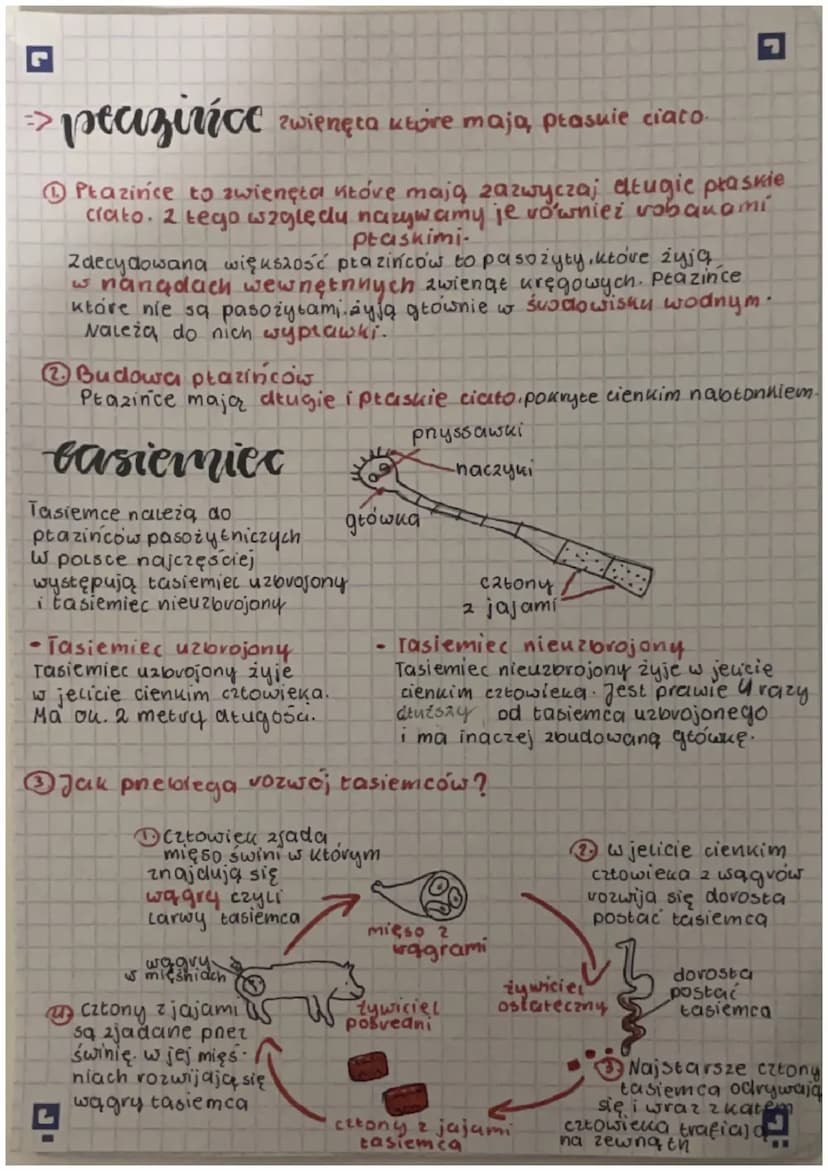 => płazińce zwierzęta które mają płaskie ciało.
① Płazińce to zwierzęta które mają zazwyczaj długie płaskie
ciało. Z tego względu nazywamy je również robakami
płaskimi.
Zdecydowana większość płazińców to pasożyty, które żyją
w narządach wewnętrznych zwierząt kręgowych. Płazińce
które nie są pasożytami, żyją głównie w środowisku wodnym.
Należą do nich wypławki.
② Budowa płazińców
Płazińce mają długie i płaskie ciało, pokryte cienkim nabłonkiem.
tasiemiec
przyssawki
haczyki
główka
człony
z jajami
Tasiemce należą do
płazińców pasożytniczych
W polsce najczęściej
występują tasiemiec uzbrojony
i tasiemiec nieuzbrojony
- Tasiemiec uzbrojony
Tasiemiec uzbrojony żyje
w jelicie cienkim człowieka.
Ma ok. 2 metry długości.
- Tasiemiec nieuzbrojony
Tasiemiec nieuzbrojony żyje w jelicie
cienkim człowieka. Jest prawie 4 razy
dłuższy od tasiemca uzbrojonego
i ma inaczej zbudowaną główkę.
③ Jak przebiega rozwój tasiemców?
① Człowiek zjada
mięso świni w którym
znajdują się
wągry czyli
larwy tasiemca
mięso z
wągrami
② w jelicie cienkim
człowieka z wągrów
rozwija się dorosła
postać tasiemca
żywiciel
ostateczny
dorosła
postać
tasiemca
③ Najstarsze człony
tasiemca odrywają
się i wraz z kałem
człowieka trafiają
na zewnątrz
człony z jajami
tasiemca
wągry
w mięśniach
żywiciel
pośredni
④ człony z jajami
są zjadane przez
świnię. w jej mięś-
niach rozwijają się
wągry tasiemca